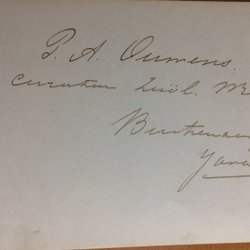 P. A. Ouwens.
Curator Zoöl. M
Buitenzo
Java